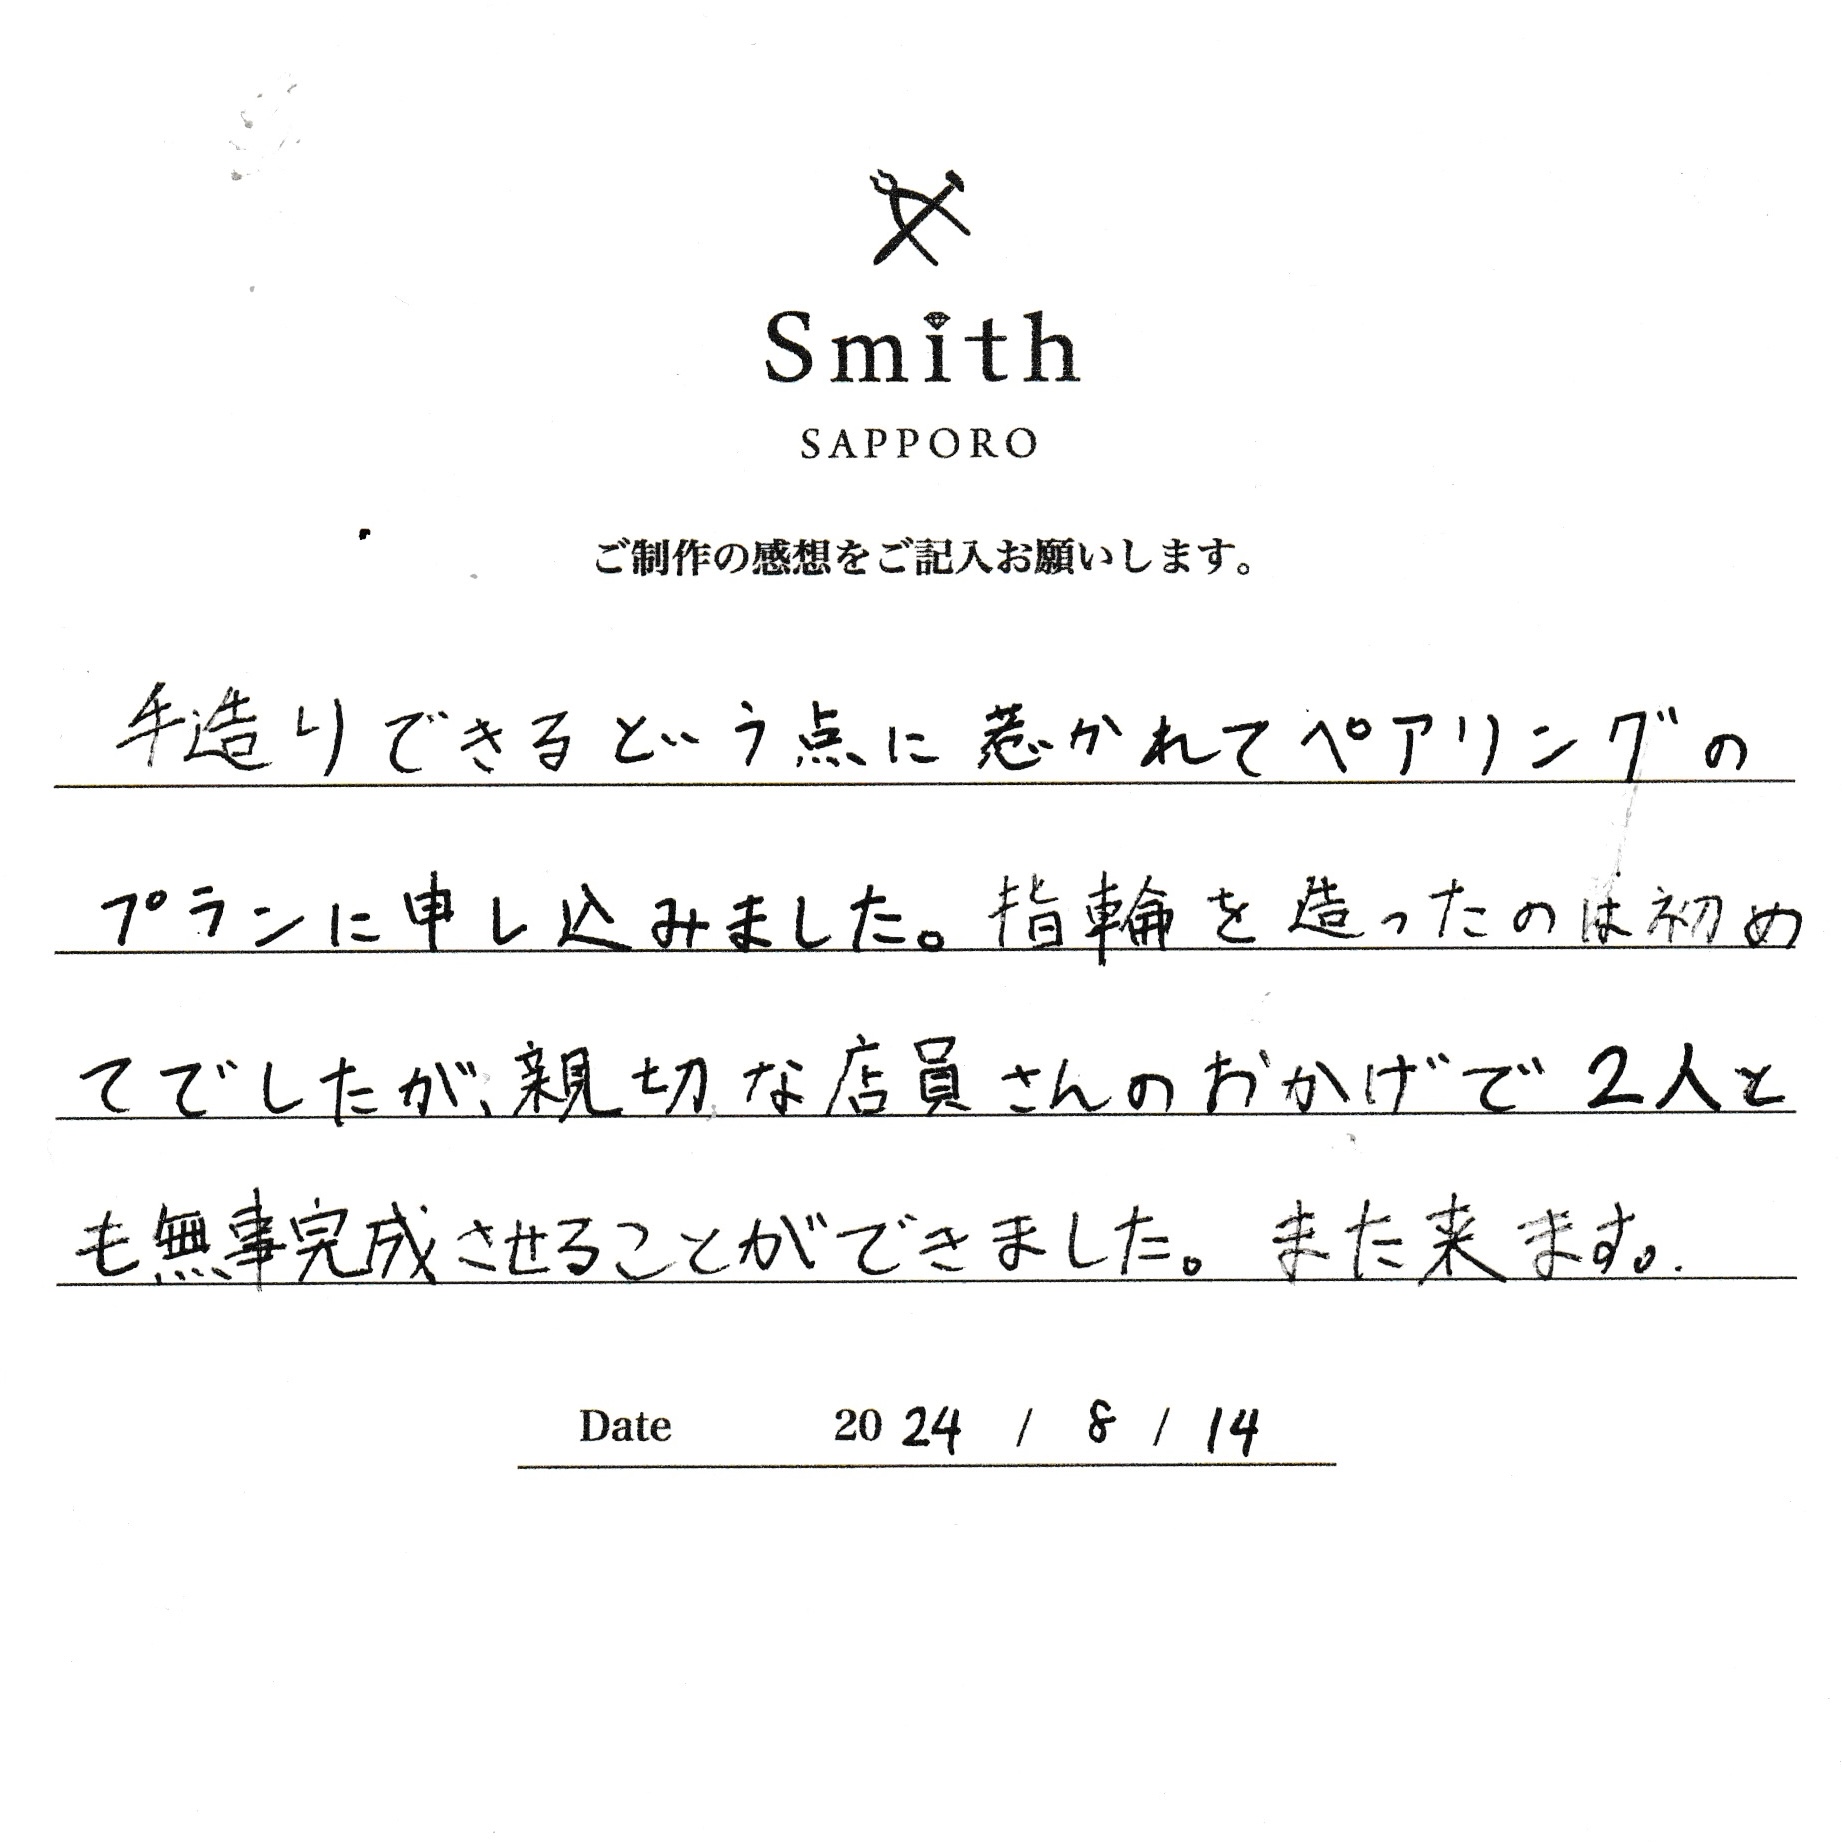 Smith
SAPPORO
ご制作の感想をご記入お願いします。
手造りできるという点に惹かれてペアリングの
プランに申し込みました。指輪を造ったのは初め
てでしたが、親切な店員さんのおかげで2人と
も無事完成させることができました。また来ます。
Date 2024 / 8 / 14